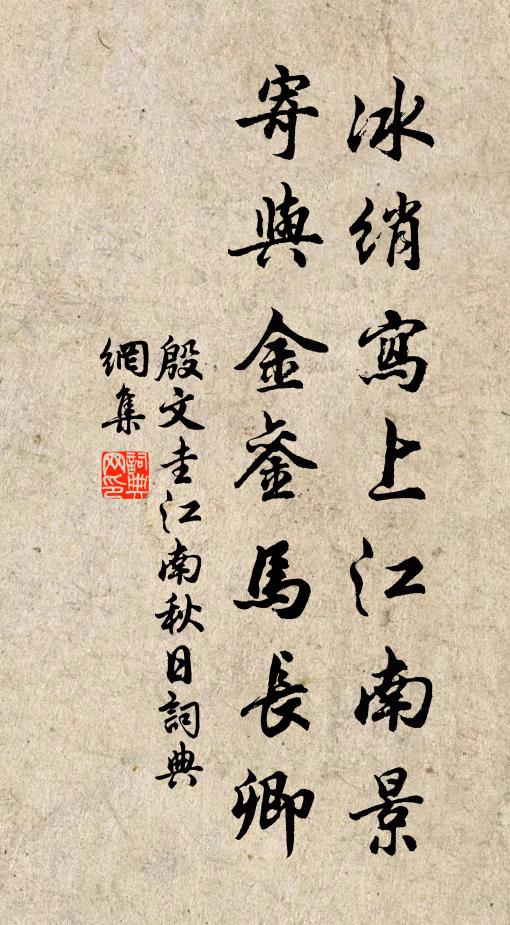 冰綃寫上江南景
寄與金鑾馬長卿
殷文圭江南秋日詞典
網集
詞典
網印